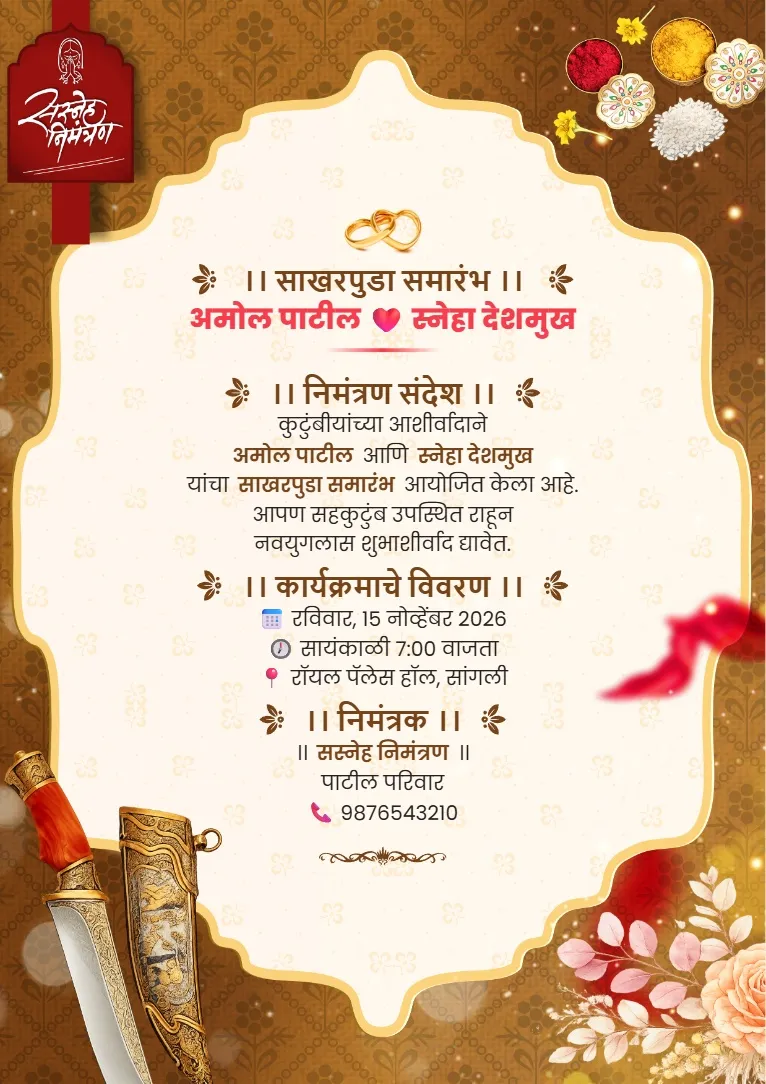 सस्नेह
निमंत्रण
।। साखरपुडा समारंभ ।।
अमोल पाटील ❤ स्नेहा देशमुख
।। निमंत्रण संदेश ।।
कुटुंबीयांच्या आशीर्वादाने
अमोल पाटील आणि स्नेहा देशमुख
यांचा साखरपुडा समारंभ आयोजित केला आहे.
आपण सहकुटुंब उपस्थित राहून
नवयुगलास शुभाशीर्वाद द्यावेत.
।। कार्यक्रमाचे विवरण ।।
📅 रविवार, 15 नोव्हेंबर 2026
🕖 सायंकाळी 7:00 वाजता
📍 रॉयल पॅलेस हॉल, सांगली
।। निमंत्रक ।।
॥ सस्नेह निमंत्रण ॥
पाटील परिवार
📞 9876543210